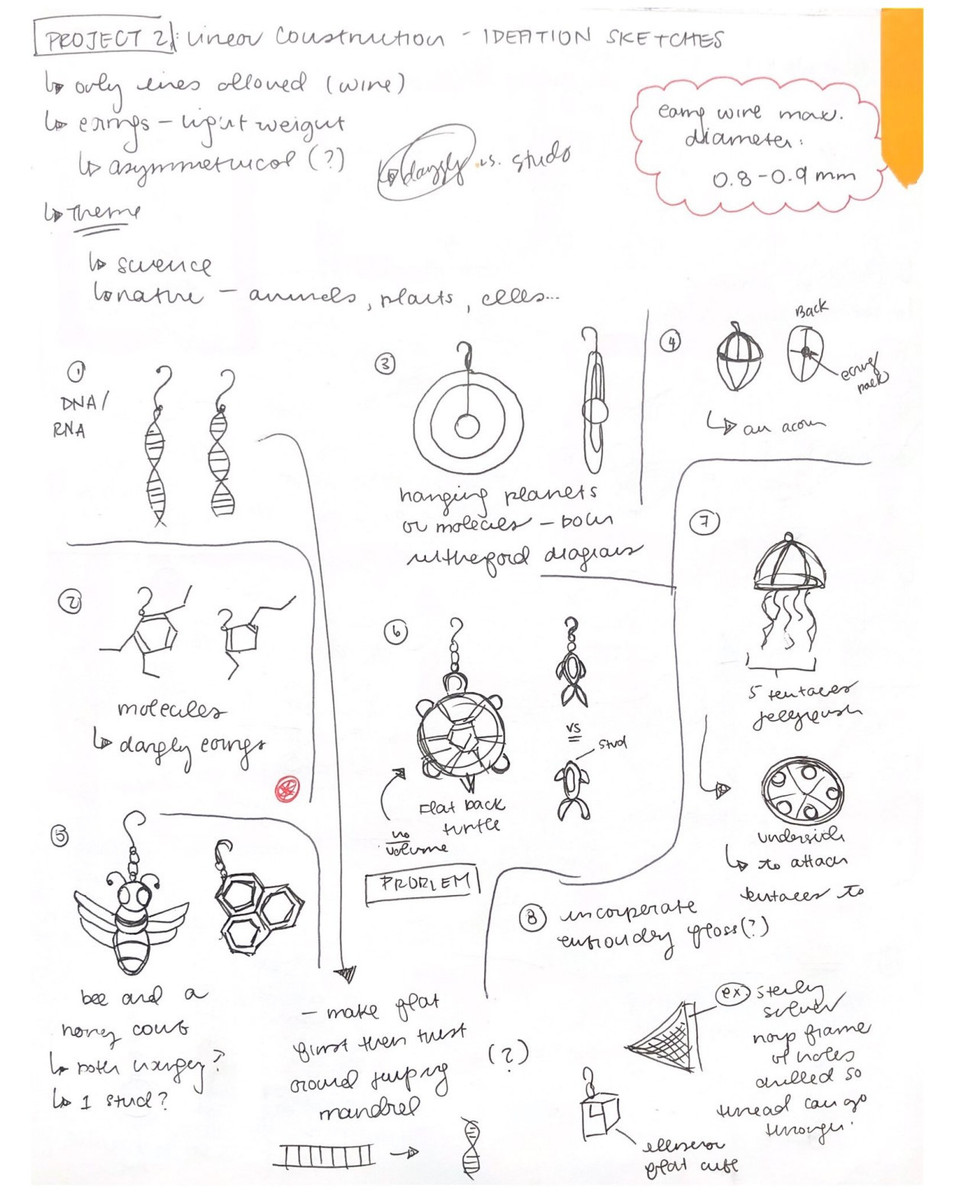 PROJECT 2: Linear Construction - IDEATION SKETCHES
↳ only lines allowed (wire)
↳ errings - light weight
↳ asymmetrical (?)
dangly vs. studs
↳ Theme
↳ science
↳ nature - animals, plants, cells...
earring wire max.
diameter:
0.8-0.9 mm
①
DNA/
RNA
②
molecules
↳ dangly earrings
③
hanging planets
or molecules - bohr
rutherford diagrams
④
Back
earring
back
↳ an acorn
⑤
bee and a
honey comb
↳ both hanging?
↳ 1 stud?
⑥
vs
stud
Flat back
turtle
no
volume
PROBLEM
- make flat
first then twist
around
mandrel
(?)
⑦
5 tentacles
jellyfish
underside
↳ to attach
tentacles to
⑧ incorperate
embroidery floss (?)
ex) sterling
silver
frame
of holes
drilled so
thread can go
through.
4
cube